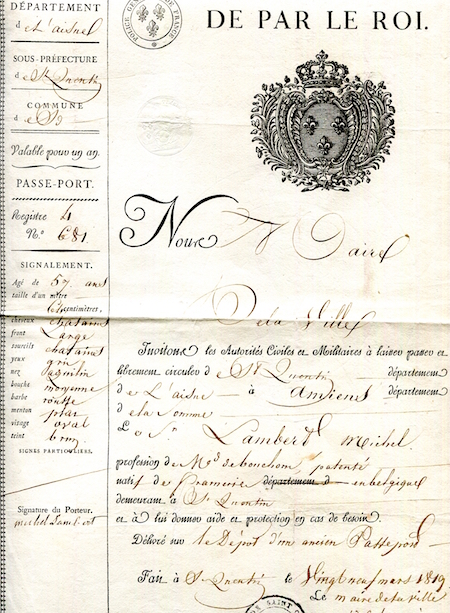 DÉPARTEMENT
d e L'aisne
SOUS-PRÉFECTURE
d e St Quentin
COMMUNE
d e St
Valable pour un an.
PASSE-PORT.
Registre 4
N.º 681
SIGNALEMENT.
Agé de 57 ans
taille d'un mètre
centimètres
cheveux chatains
front large
sourcils chatains
yeux gris
nez aquilin
bouche moyenne
barbe rousse
menton plat
visage oval
teint brun
SIGNES PARTICULIERS.
Signature du Porteur.
michel Lambert
POLICE GÉN DE FRANCE
DE PAR LE ROI.
Nous Maire
De la Ville
Invitons les Autorités Civiles et Militaires à laisser passer et
librement circuler de St Quentin département
de L'aisne à Amiens département
de la Somme
L e Sr Lambert Michel
profession de Md de bouchons, patenté
natif de département d en belgique
demeurant à St Quentin
et à lui donner aide et protection en cas de besoin.
Délivré sur le Dépot d'un ancien Passeport
Fait à St Quentin le Vingt neuf mars 1819
Le maire de la ville